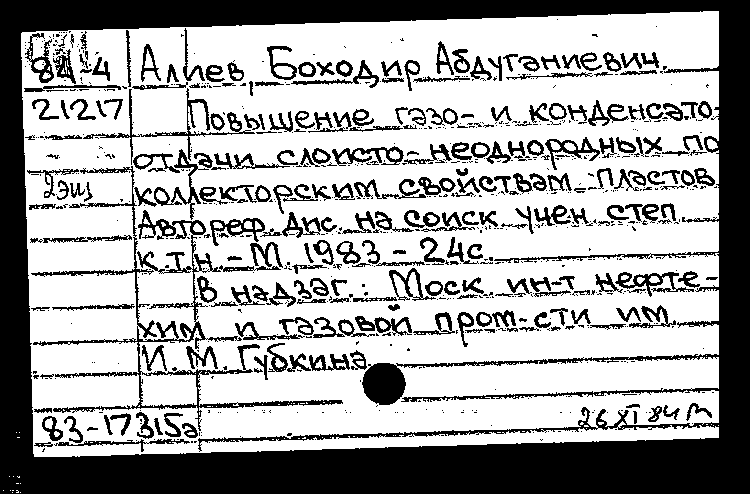 84-4 Алиев, Боходир Абдуганиевич.
21217 Повышение газо- и конденсато-
отдачи слоисто-неоднородных по
2эш коллекторским свойствам пластов.
Автореф. дис. на соиск учен степ
к.т.н. - М., 1983 - 24с.
В надзаг.: Моск ин-т нефте-
хим и газовой пром-сти им
И. М. Губкина
83-17315а 26 XI 84